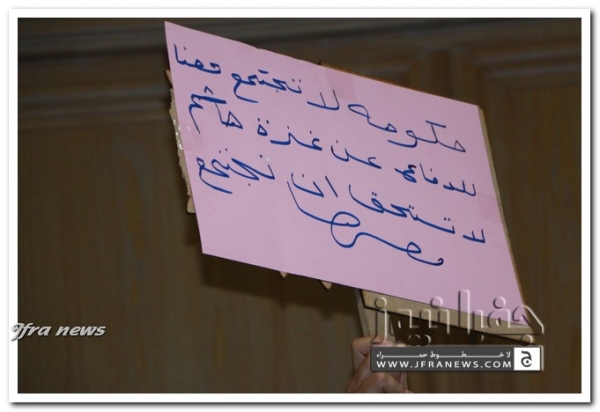 حكومه لا تجتمع معنا
للدفاع عن غزة هاشم
لا تستحق ان نجتمع
معها
Jfra news
جفرا نيوز
لا خطوط حمراء
WWW.JFRANEWS.COM
ج